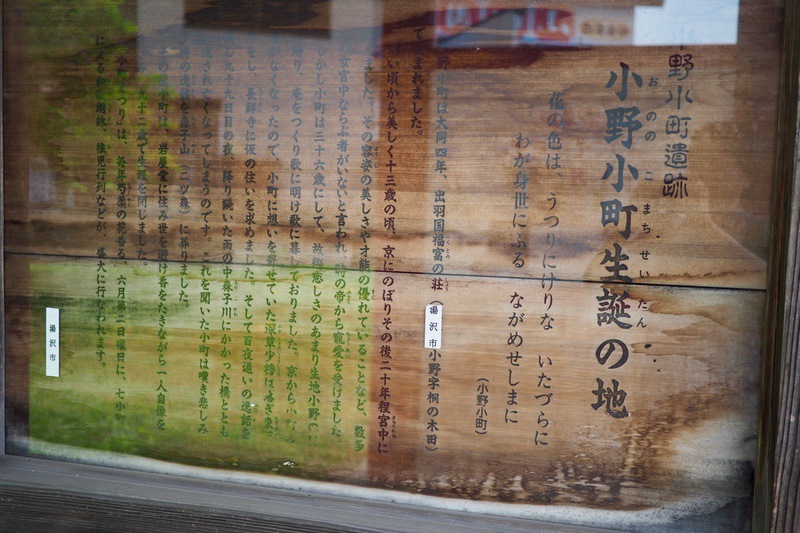 小野小町遺跡
小野小町生誕の地
おののこまちせいたん
花の色は、うつりにけりな いたづらに
わが身世にふる ながめせしまに
(小野小町)
野小町は大同四年、出羽国福富の荘(湯沢市小野字桐の木田)
で生まれました。
い頃から美しく十三歳の頃、京にのぼりその後二十年程宮中に
ました。その容姿の美しさや才能の優れていることなど、数多
の女官中ならぶ者がいないと言われ、時の帝から寵愛を受けました。
しかし小町は三十六歳にして、故郷恋しさのあまり生地小野
り、庵をつくり歌に明け歌に暮しておりました。京から小町
なくなったので、小町に想いを寄せていた深草少将は
をし、長鮮寺に仮の住いを求めました。そして百夜通いの
し九十九日目の夜、降り続いた雨の中森子川にかかった橋ととも
されなくなってしまうのです。これを聞いた小町は嘆き悲しみ
の遺骸を森子山(二ツ森)に葬りました。
の後小町は、岩屋堂に住み世を避け香をたきながら一人自像を
九十二歳で生涯を閉じました。
小町まつり」は、毎年芍薬の花香る、六月第二日曜日に、七小町
による和歌朗詠、稚児行列などが、盛大に行なわれます。
湯沢市